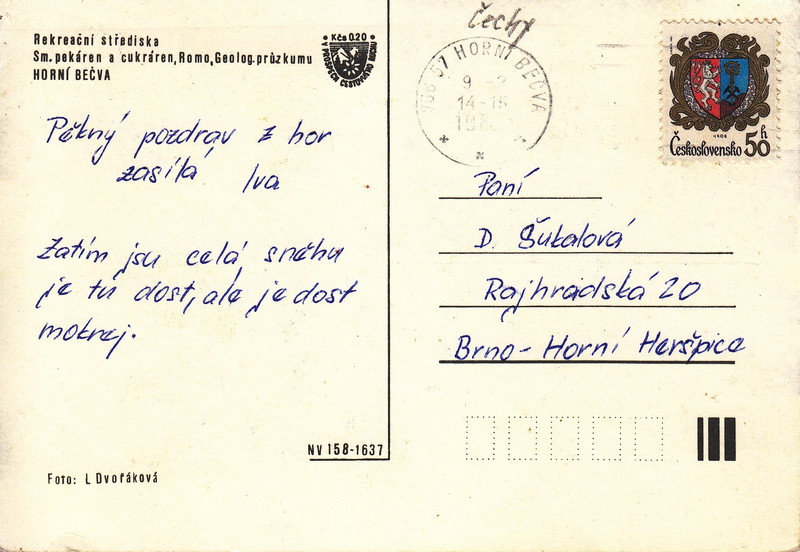 Čechy
Rekreační střediska
Sm. pekáren a cukráren, Romo, Geolog. průzkumu
HORNÍ BEČVA
Kčs 0.20
V PROSPĚCH CESTOVNÍHO RUCHU
57 HORNÍ BEČVA
9
14-16
Československo 50 h
Pěkný pozdrav z hor
zasílá Iva
Zatím jsu celá sněhu
je tu dost, ale je dost
mokrej.
Paní
D. Šukalová
Rajhradská 20
Brno - Horní Heršpice
NV 158-1637
Foto: L Dvořáková